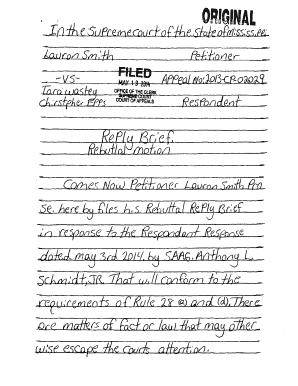 ORIGINAL
In the Supreme court of the State of Mississippi
Lauron Smith Petitioner
-VS- FILED Appeal No: 2013-CP-02029
MAY 13 2014
Tara Wasley OFFICE OF THE CLERK
SUPREME COURT
Christpher Epps COURT OF APPEALS Respondent
Reply Brief.
Rebuttal motion
Comes Now Petitioner Lauron Smith Pro
Se. here by files his Rebuttal Reply Brief
in response to the Respondent Response
dated may 3rd 2014 by SAAG. Anthony L
Schmidt, JR. That will conform to the
requirements of Rule 28 and (d). There
are matters of fact or law that may other
wise escape the courts attention.